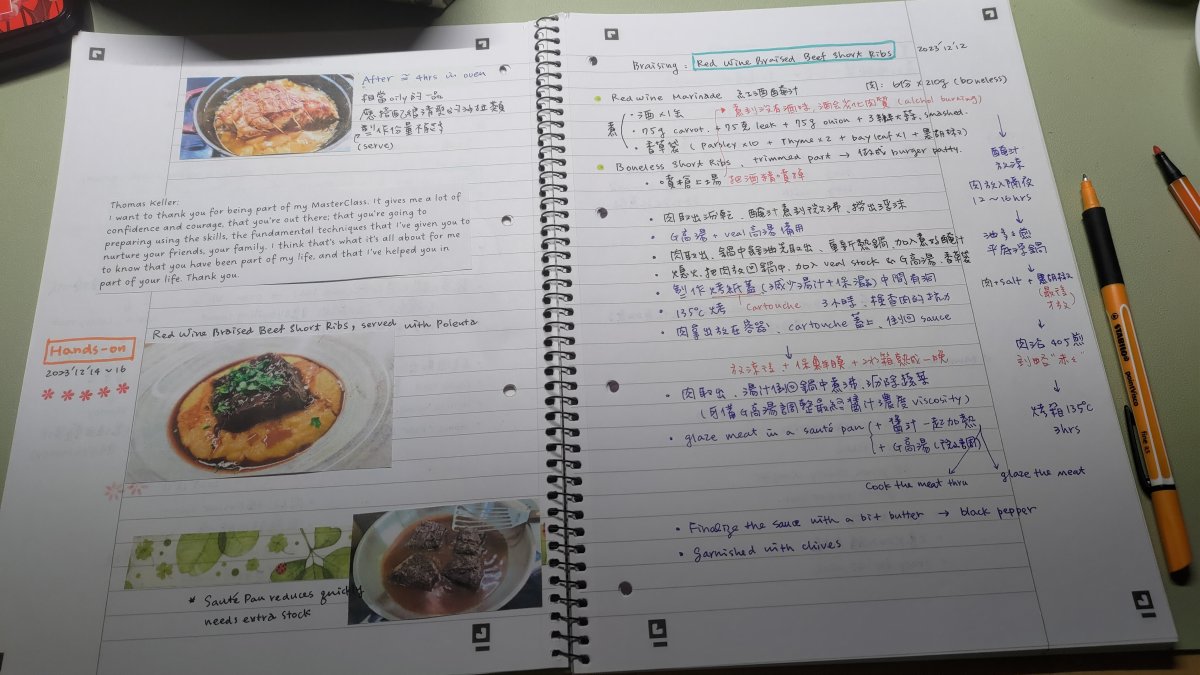 After ≈ 4hrs in oven
相當oily的一品
應搭配很清爽的沙拉類
製作份量不能多
(serve)
Thomas Keller:
I want to thank you for being part of my MasterClass. It gives me a lot of
confidence and courage, that you're out there; that you're going to
preparing using the skills, the fundamental techniques that I've given you to
nurture your friends, your family. I think that's what it's all about for me
to know that you have been part of my life, and that I've helped you in
part of your life. Thank you.
Red Wine Braised Beef Short Ribs, served with Polenta
Hands-on
2023'12'14~16
* Sauté Pan reduces quickly
needs extra stock
Braising: Red Wine Braised Beef Short Ribs
2023'12'12
Red wine Marinade 紅酒醃汁
肉: 6份 × 210g (boneless)
煮
• 酒×1瓶
煮到沒有酒味, 酒會劣化肉質 (alchol burning)
• 75g carrot + 75克 leek + 75g onion + 3辦大蒜, smashed.
• 香草袋 (Parsley×10 + Thyme×2 + bay leaf×1 + 黑胡椒)
Boneless Short Ribs, trimmed part → 做成 burger patty.
• 噴槍上場 把酒精噴掉
• 肉取出沥乾, 醃汁煮到沸, 撈出浮沫
• G高湯 + veal高湯 備用
• 肉取出, 鍋中餘油先取出, 重新熱鍋, 加入煮好醃汁
• 熄火, 把肉放回鍋中, 加入 veal stock 和 G高湯, 香草袋
• 製作烤紙蓋 (減少湯汁+保濕) 中間有洞
• 135°C 烤 Cartouche 3小時, 檢查肉的抗力
• 肉拿出放在容器, cartouche 蓋上, 倒回 sauce
↓
放涼後 + 保鮮膜 + 冰箱熟成一晚
• 肉取出, 湯汁倒回鍋中煮沸, 沥除蔬菜
(另備G高湯調整最終醬汁濃度 viscosity)
• glaze meat in a sauté pan (+ 醬汁一起加熱
+ G高湯
cook the meat thru
glaze the meat
• Finalize the sauce with a bit butter → black pepper
• garnished with chives
↓
醃汁
放涼
肉放入隔夜
12~16hrs
↓
平底深鍋
↓
肉+salt + 黑胡椒
(最後
放)
↓
↓
烤箱135°C
3hrs
STABILO
point
fine 0.4